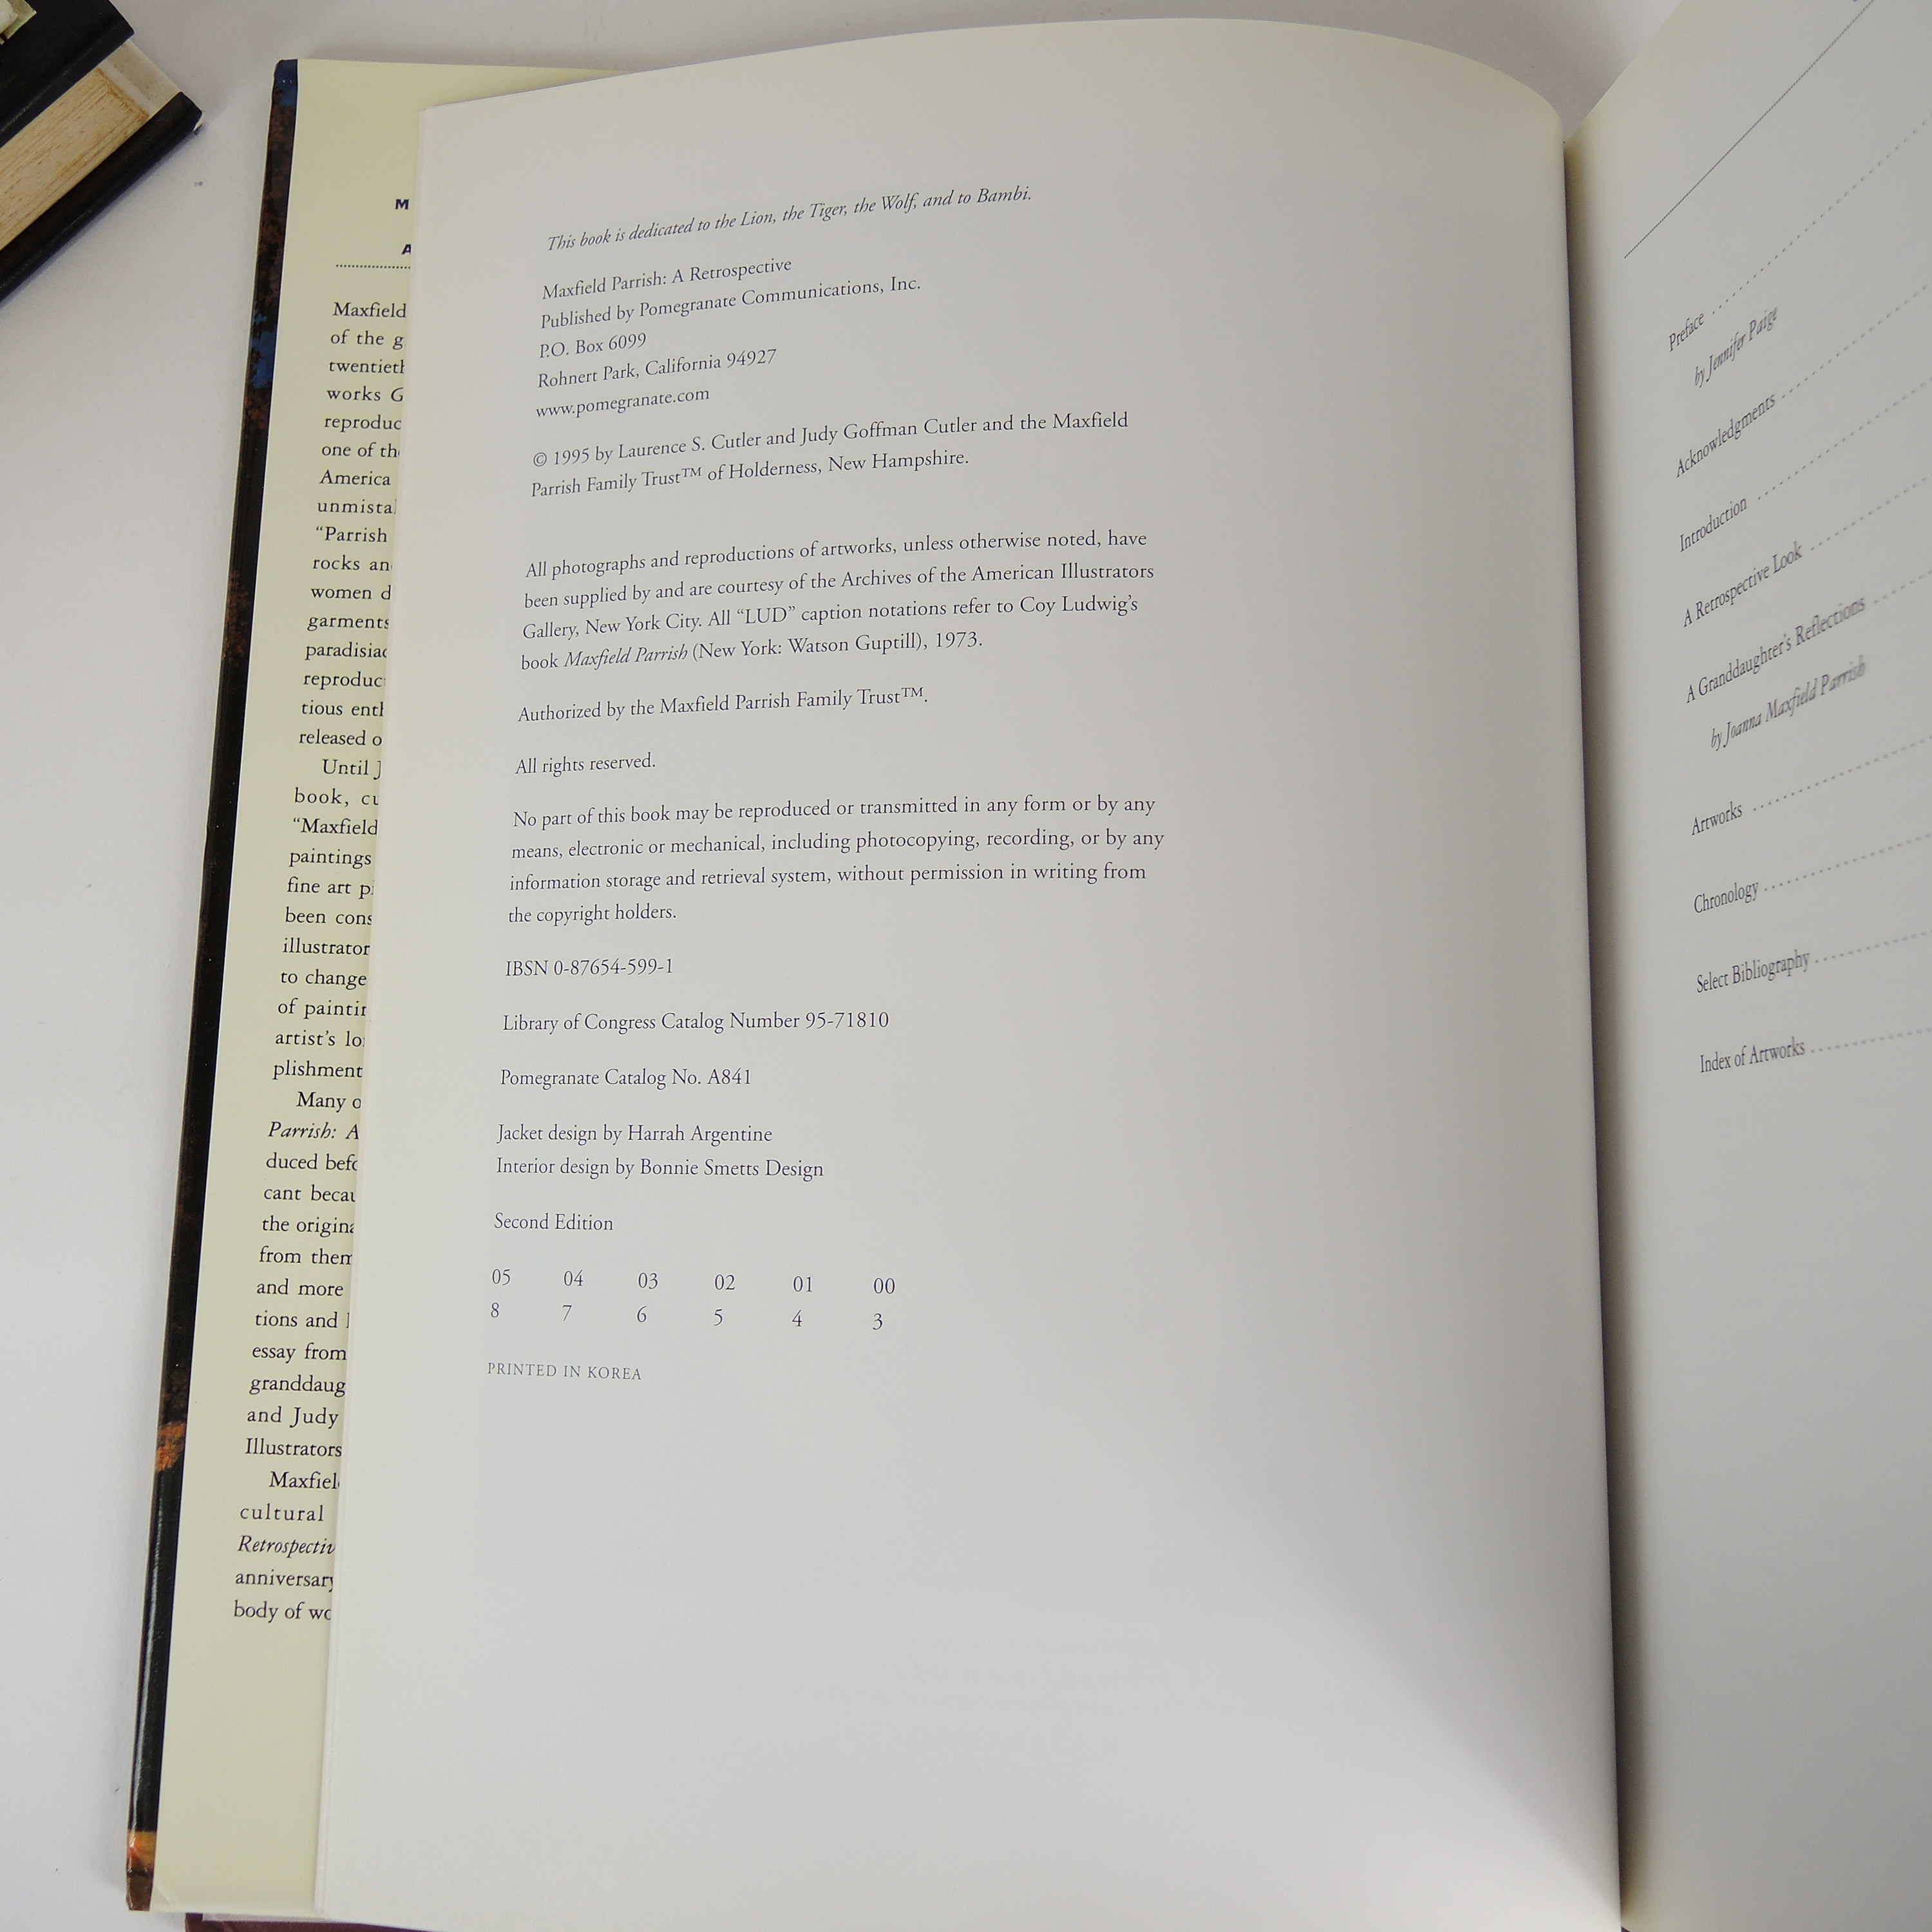 M
A
Maxfield
of the g
twentieth
works G
reproduc
one of the
America
unmista
"Parrish
rocks an
women d
garments
paradisiac
reproduc
tious enth
released o
Until J
book, cu
"Maxfield
paintings
fine art p
been cons
illustrator
to change
of paintin
artist's lo
plishment
Many o
Parrish: A
duced befo
cant becau
the origina
from them
and more
tions and
essay from
granddaug
and Judy
Illustrators
Maxfiel
cultural
Retrospectiv
anniversary
body of wo
This book is dedicated to the Lion, the Tiger, the Wolf, and to Bambi.
Maxfield Parrish: A Retrospective
Published by Pomegranate Communications, Inc.
P.O. Box 6099
Rohnert Park, California 94927
www.pomegranate.com
© 1995 by Laurence S. Cutler and Judy Goffman Cutler and the Maxfield
Parrish Family Trust™ of Holderness, New Hampshire.
All photographs and reproductions of artworks, unless otherwise noted, have
been supplied by and are courtesy of the Archives of the American Illustrators
Gallery, New York City. All "LUD" caption notations refer to Coy Ludwig's
book Maxfield Parrish (New York: Watson Guptill), 1973.
Authorized by the Maxfield Parrish Family Trust™.
All rights reserved.
No part of this book may be reproduced or transmitted in any form or by any
means, electronic or mechanical, including photocopying, recording, or by any
information storage and retrieval system, without permission in writing from
the copyright holders.
IBSN 0-87654-599-1
Library of Congress Catalog Number 95-71810
Pomegranate Catalog No. A841
Jacket design by Harrah Argentine
Interior design by Bonnie Smetts Design
Second Edition
05 04 03 02 01 00
8 7 6 5 4 3
PRINTED IN KOREA
Preface
by Jennifer Paige
Acknowledgments
Introduction
A Retrospective Look
A Granddaughter's Reflections
by Joanna Maxfield Parrish
Artworks
Chronology
Select Bibliography
Index of Artworks